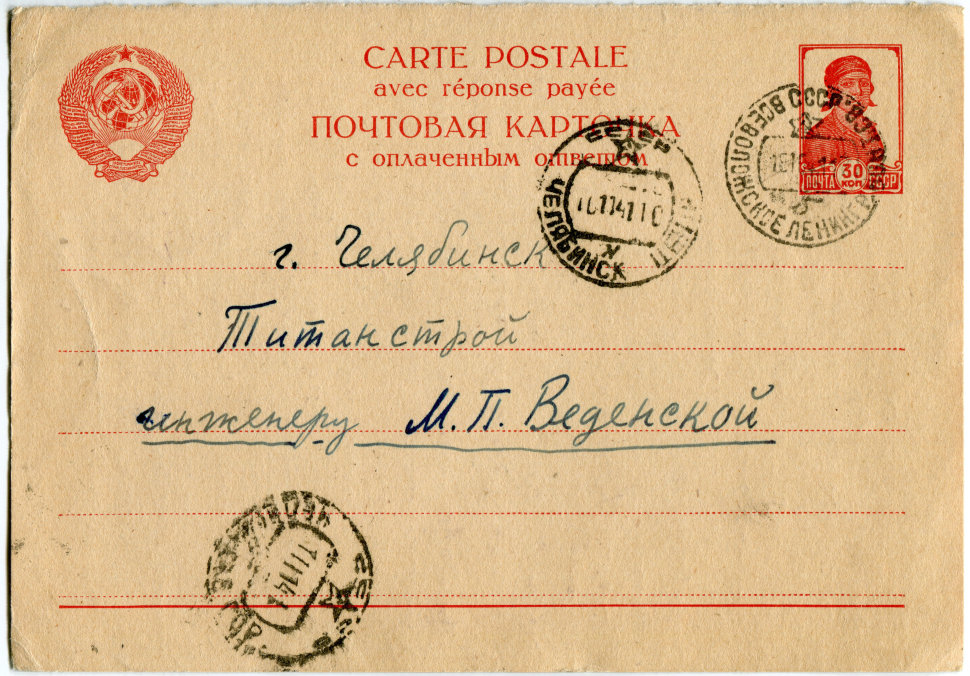 CARTE POSTALE
avec réponse payée
ПОЧТОВАЯ КАРТОЧКА
с оплаченным ответом
ПОЧТА 30 КОП СССР
СССР
ВСЕВОЛОЖСКОЕ ЛЕНИНГ
ЧЕЛЯБИНСК
г. Челябинск
Титанстрой
инженеру М.П. Веденской